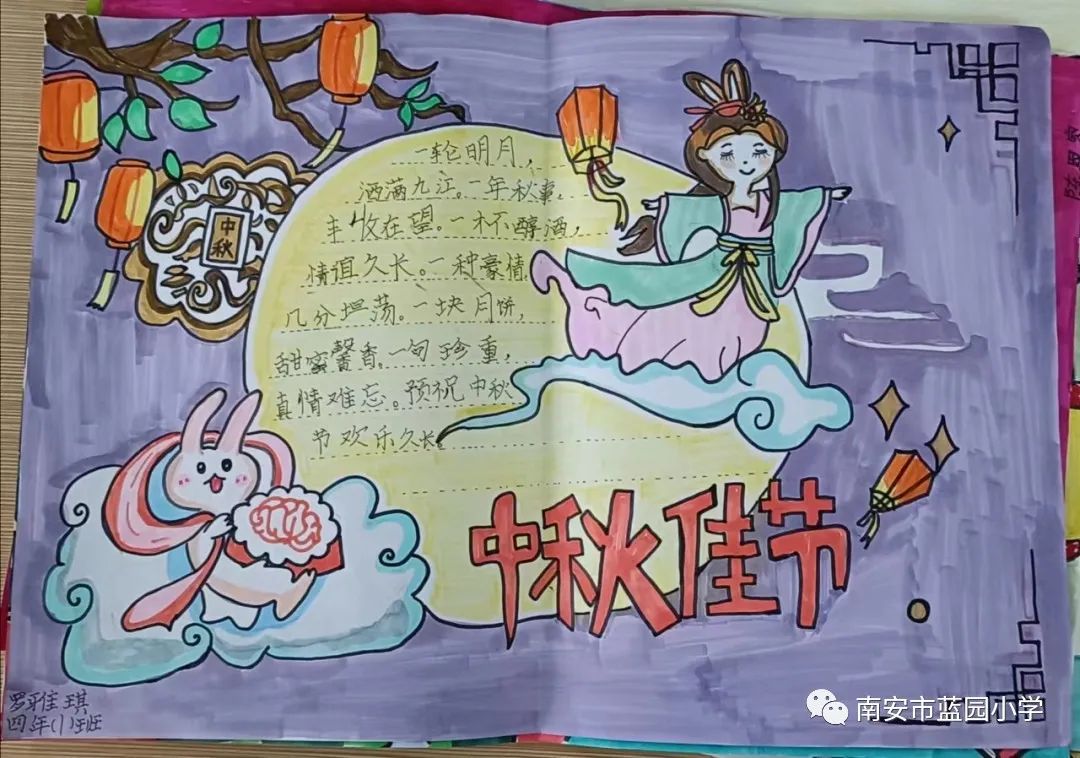 中
秋
一轮明月，
洒满九江。一年秋事，
丰收在望。一杯醇酒，
情谊久长。一种豪情，
几分坦荡。一块月饼，
甜蜜馨香。一句珍重，
真情难忘。预祝中秋
节欢乐久长。
中秋佳节
罗雅琪
四年(1)班
南安市蓝园小学